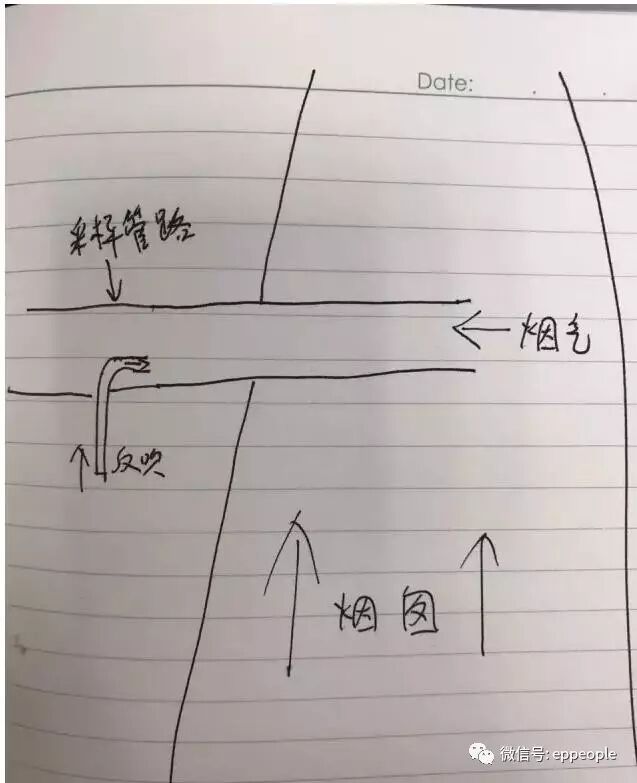 Date:
采样管路
烟气
反吹
烟囱
微信号: eppeople